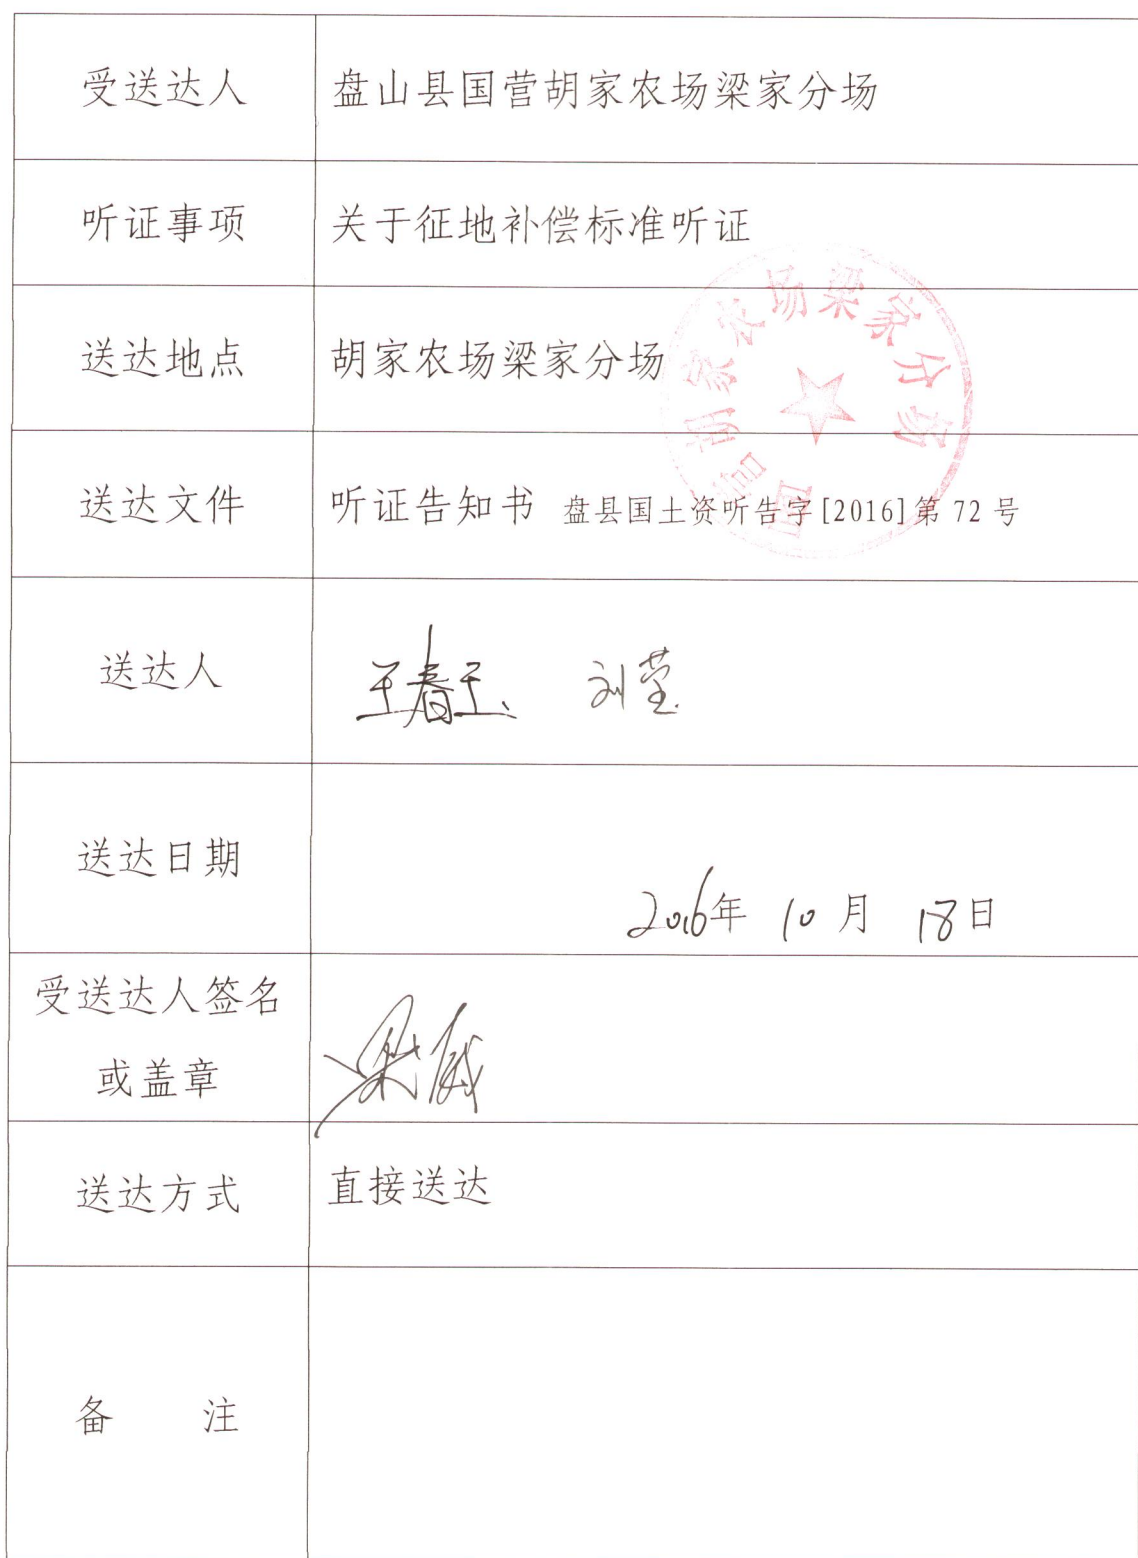 受送达人 盘山县国营胡家农场梁家分场
听证事项 关于征地补偿标准听证
送达地点 胡家农场梁家分场
国营胡家农场梁家分场
送达文件 听证告知书 盘县国土资听告字[2016]第 72 号
送达人 王春玉 刘莹
送达日期
2016年 10 月 18日
受送达人签名
或盖章
梁威
送达方式 直接送达
备 注